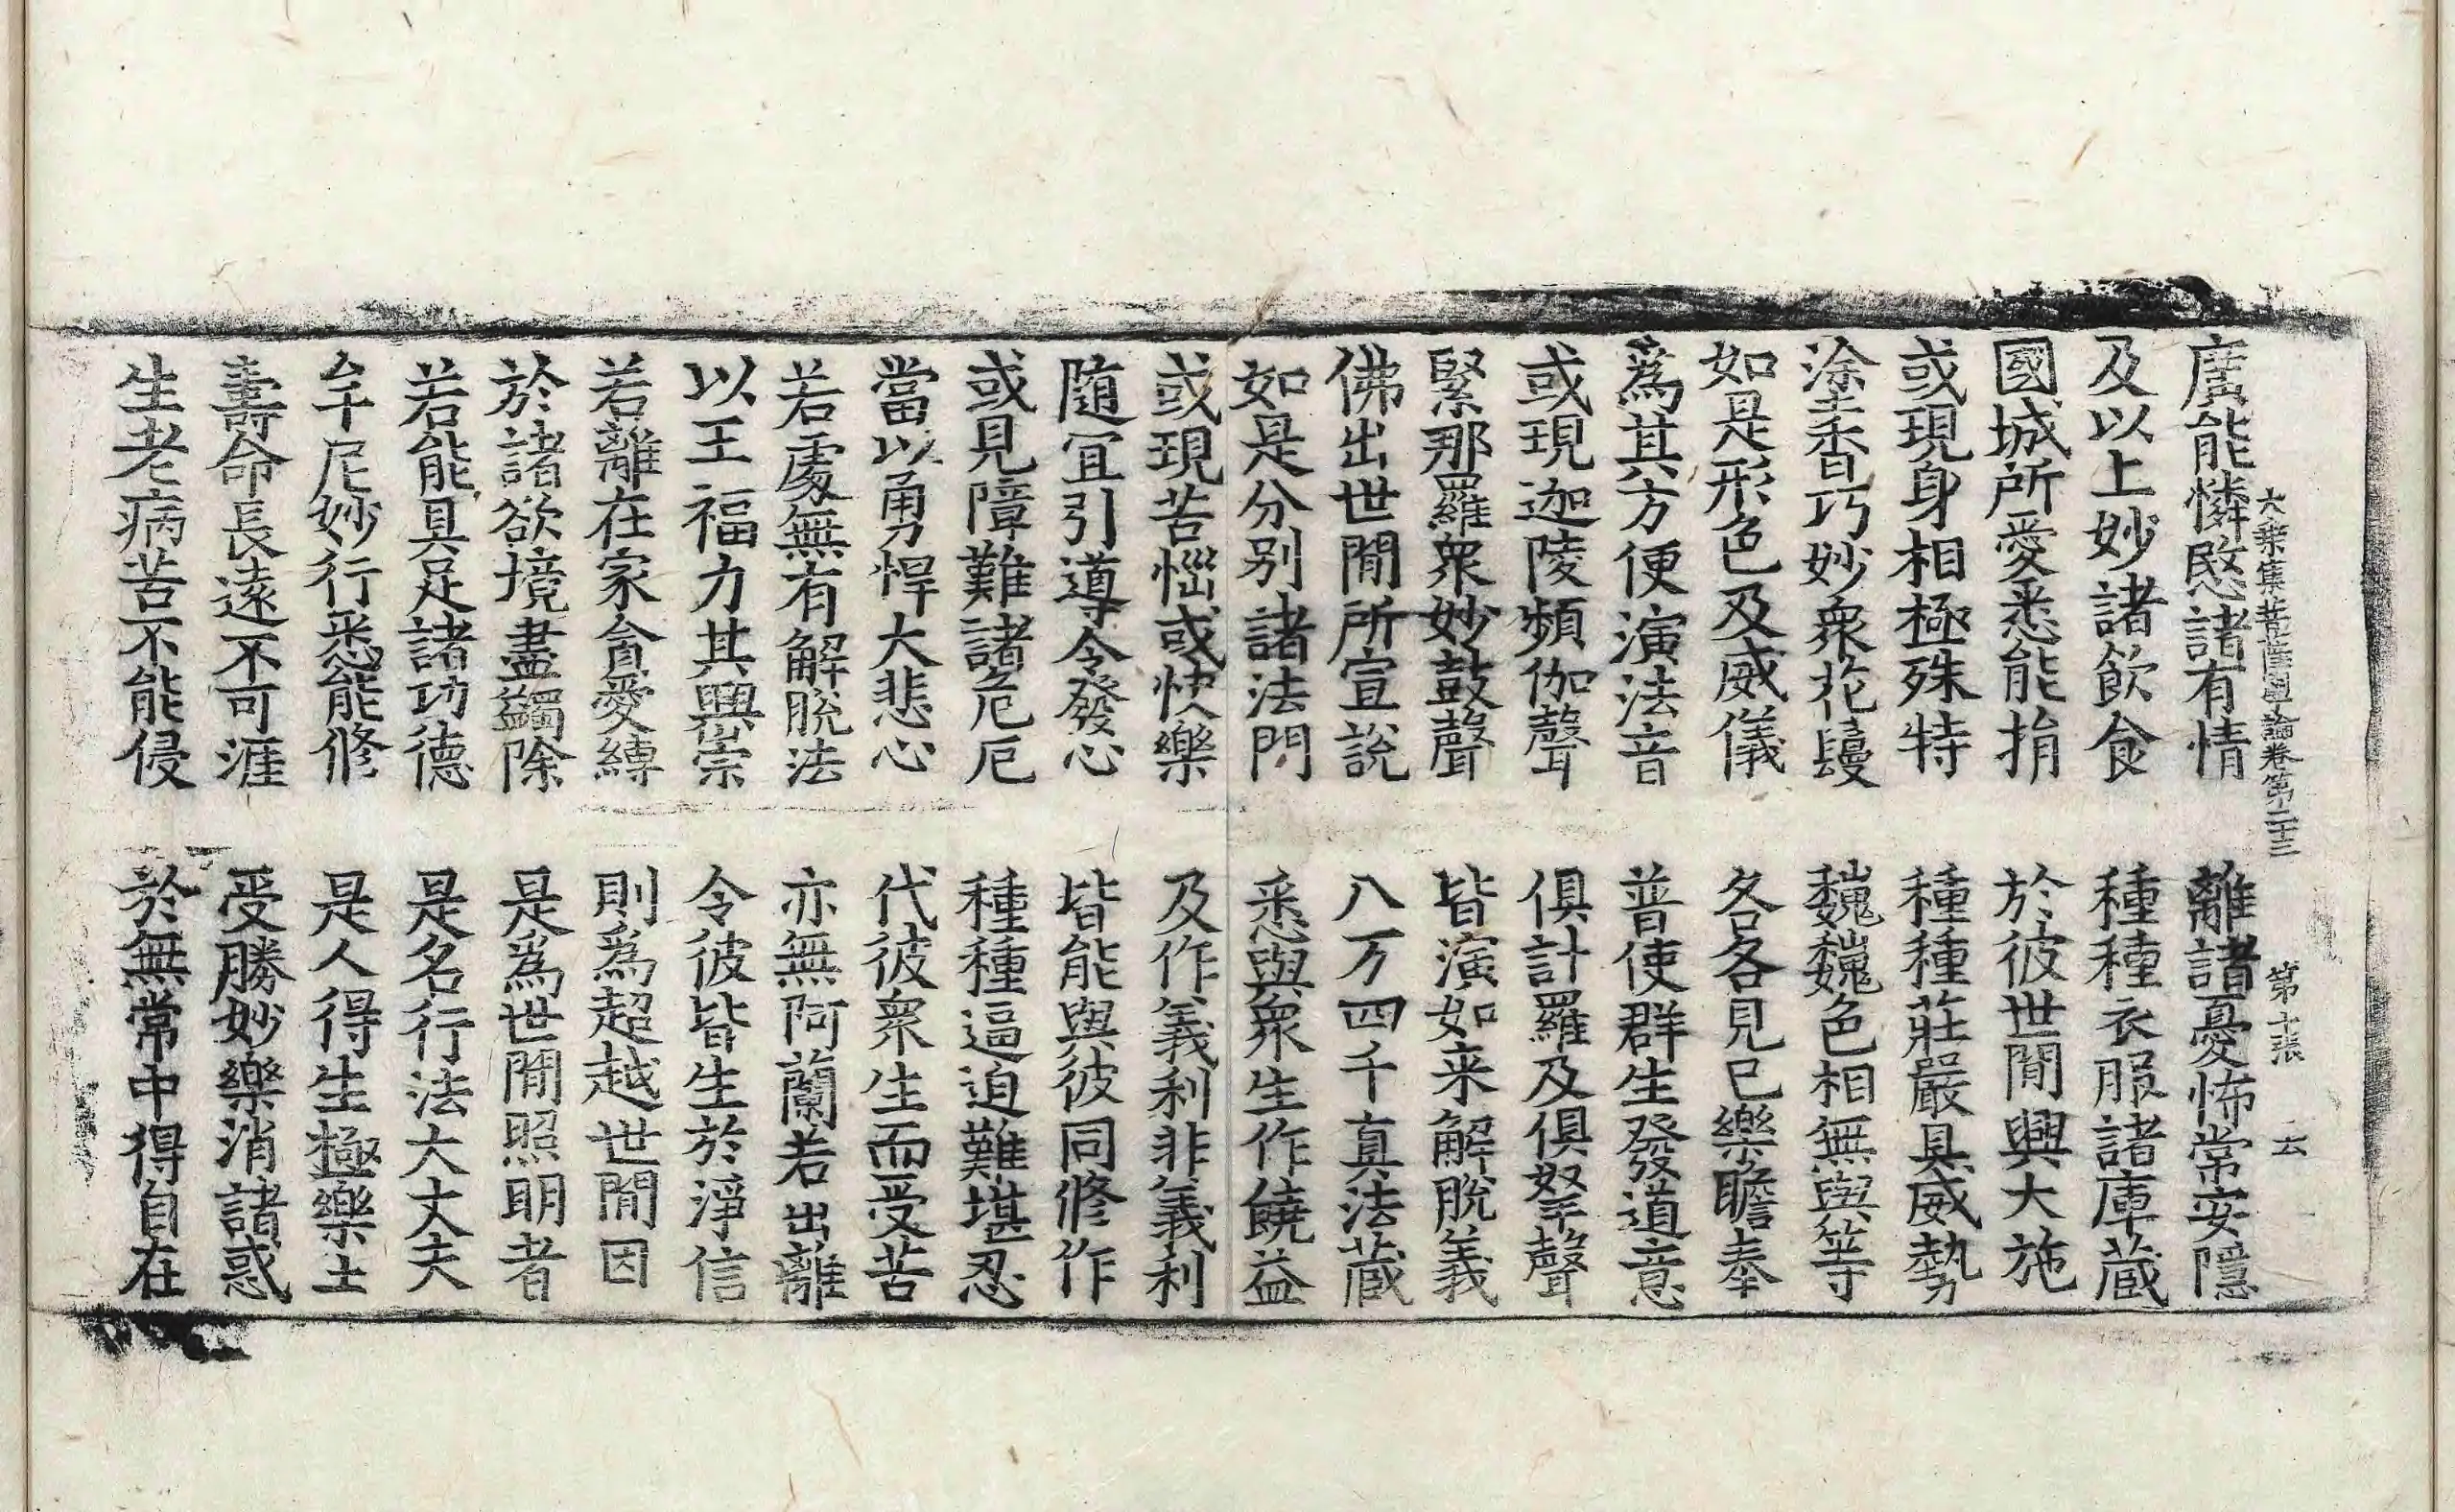 大乘集菩薩學論卷第二十三 第十張 云
廣能憐愍諸有情 離諸憂怖常安隱
及以上妙諸飲食 種種衣服諸庫蔵
國城所愛悉能捐 於彼世間興大施
或現身相極殊特 種種莊嚴具威勢
塗香巧妙衆花鬘 巍巍色相無與等
如是形色及威儀 各各見已樂瞻奉
為其方便演法音 普使群生發道意
或現迦陵頻伽聲 俱計羅及俱孥聲
緊那羅衆妙鼓聲 皆演如来解脫義
佛出世間所宣說 八万四千真法蔵
如是分别諸法門 悉與衆生作饒益
或現苦惱或快樂 及作義利非義利
随冝引導令發心 皆能與彼同修作
或見障難諸危厄 種種逼迫難堪忍
當以勇悍大悲心 代彼衆生而受苦
若處無有解脫法 亦無阿蘭若出離
以王福力其興崇 令彼皆生於淨信
若離在家貪愛縛 則為超越世間因
於諸欲境盡蠲除 是為世間照明者
若能具足諸功德 是名行法大丈夫
牟尼妙行悉能修 是人得生極樂土
壽命長遠不可涯 受勝妙樂消諸惑
生老病苦不能侵 於無常中得自在